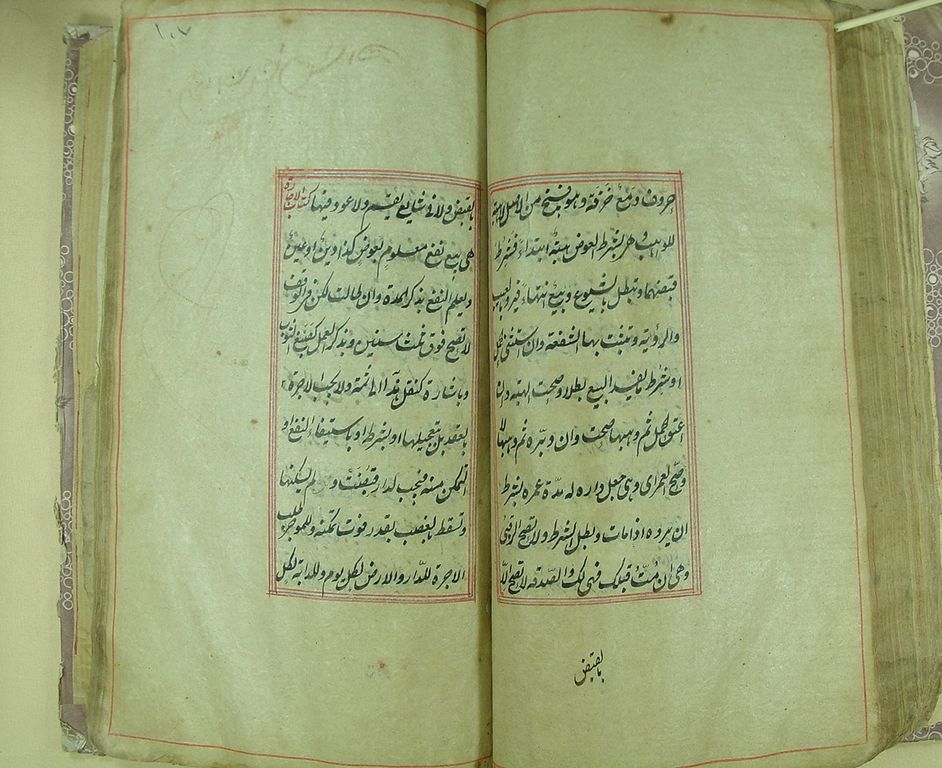 حروف دمع خزقه وهو فسخ من الاصل لا هبة
للواهب وهي بشرط العوض هبة ابتداء فشرط
قبضهما وتبطل بالشيوع وبيع انتهاء فيرد بالعيب
والرؤية وتثبت بها الشفعة وان استثنى الحمل
او شرط ما يفسد البيع بطلا وصحت الهبة وان
اعتق الحمل ثم وهبها صحت وان دبره ثم وهبها لا
وصح العمرى وهي جعل داره له مدة عمره بشرط
ان يرده اذا مات وبطل الشرط ولا تصح الرقبى
وهي ان مت قبلك فهي لك والصدقة لا تصح الا
بالقبض
١٠٧
بالقبض ولا في شايع يقسم ولا عود فيها كتاب الاجارة
هي بيع نفع معلوم بعوض كذا دين او عين
ويعلم النفع بذكر المدة وان طالت لكن في الوقف
لا تصح فوق ثلث سنين وبذكر العمل كصبغ الثوب
وباشارة كنقل هذا الى ثمة ولا يجب الاجرة
بالعقد بل بتعجيلها او بشرطه او باستيفاء النفع او
التمكن منه فيجب لدار قبضت ولم يسكنها
وتسقط بالغصب بقدر فوت تمكنه وللموجر طلب
الاجرة للدار والارض لكل يوم وللدابة لكل